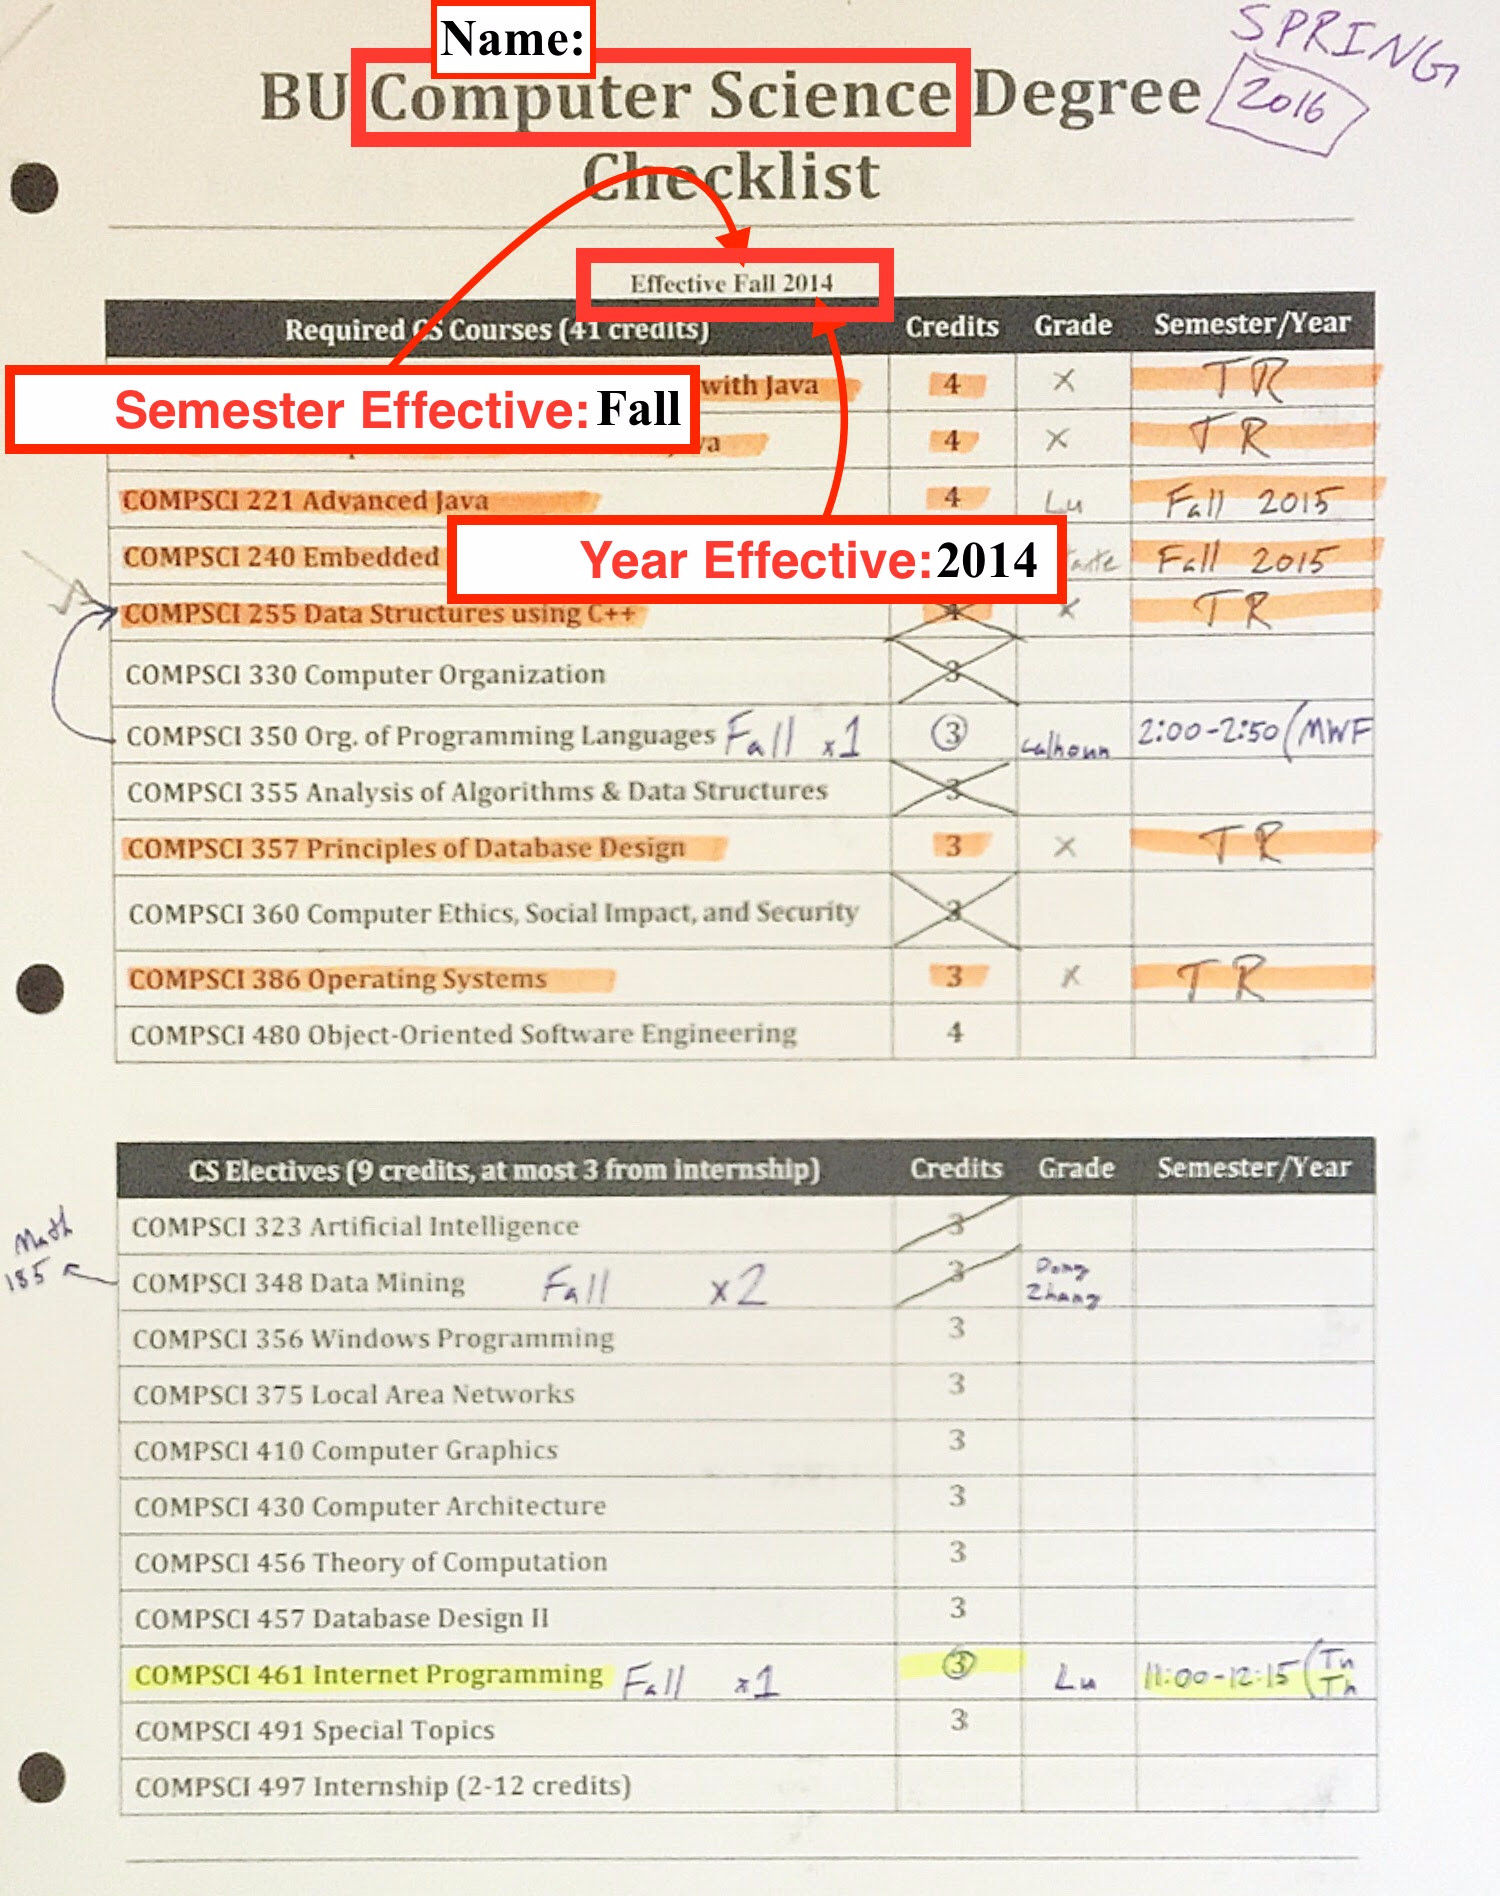 SPRING
2016
Name:
BU Computer Science Degree
Checklist
Effective Fall 2014
Required CS Courses (41 credits) Credits Grade Semester/Year
with Java 4 X TR
Semester Effective: Fall
4 X TR
COMPSCI 221 Advanced Java 4 Lu Fall 2015
COMPSCI 240 Embedded Fall 2015
Year Effective: 2014
COMPSCI 255 Data Structures using C++ 4 X TR
COMPSCI 330 Computer Organization 3
COMPSCI 350 Org. of Programming Languages Fall x1 3 Calhoun 2:00-2:50 (MWF
COMPSCI 355 Analysis of Algorithms & Data Structures 3
COMPSCI 357 Principles of Database Design 3 X TR
COMPSCI 360 Computer Ethics, Social Impact, and Security 3
COMPSCI 386 Operating Systems 3 X TR
COMPSCI 480 Object-Oriented Software Engineering 4
CS Electives (9 credits, at most 3 from internship) Credits Grade Semester/Year
COMPSCI 323 Artificial Intelligence 3
Math
185
COMPSCI 348 Data Mining Fall x2 3 Dong Zhang
COMPSCI 356 Windows Programming 3
COMPSCI 375 Local Area Networks 3
COMPSCI 410 Computer Graphics 3
COMPSCI 430 Computer Architecture 3
COMPSCI 456 Theory of Computation 3
COMPSCI 457 Database Design II 3
COMPSCI 461 Internet Programming Fall x1 3 Lu 11:00-12:15 (Tu Th
COMPSCI 491 Special Topics 3
COMPSCI 497 Internship (2-12 credits)